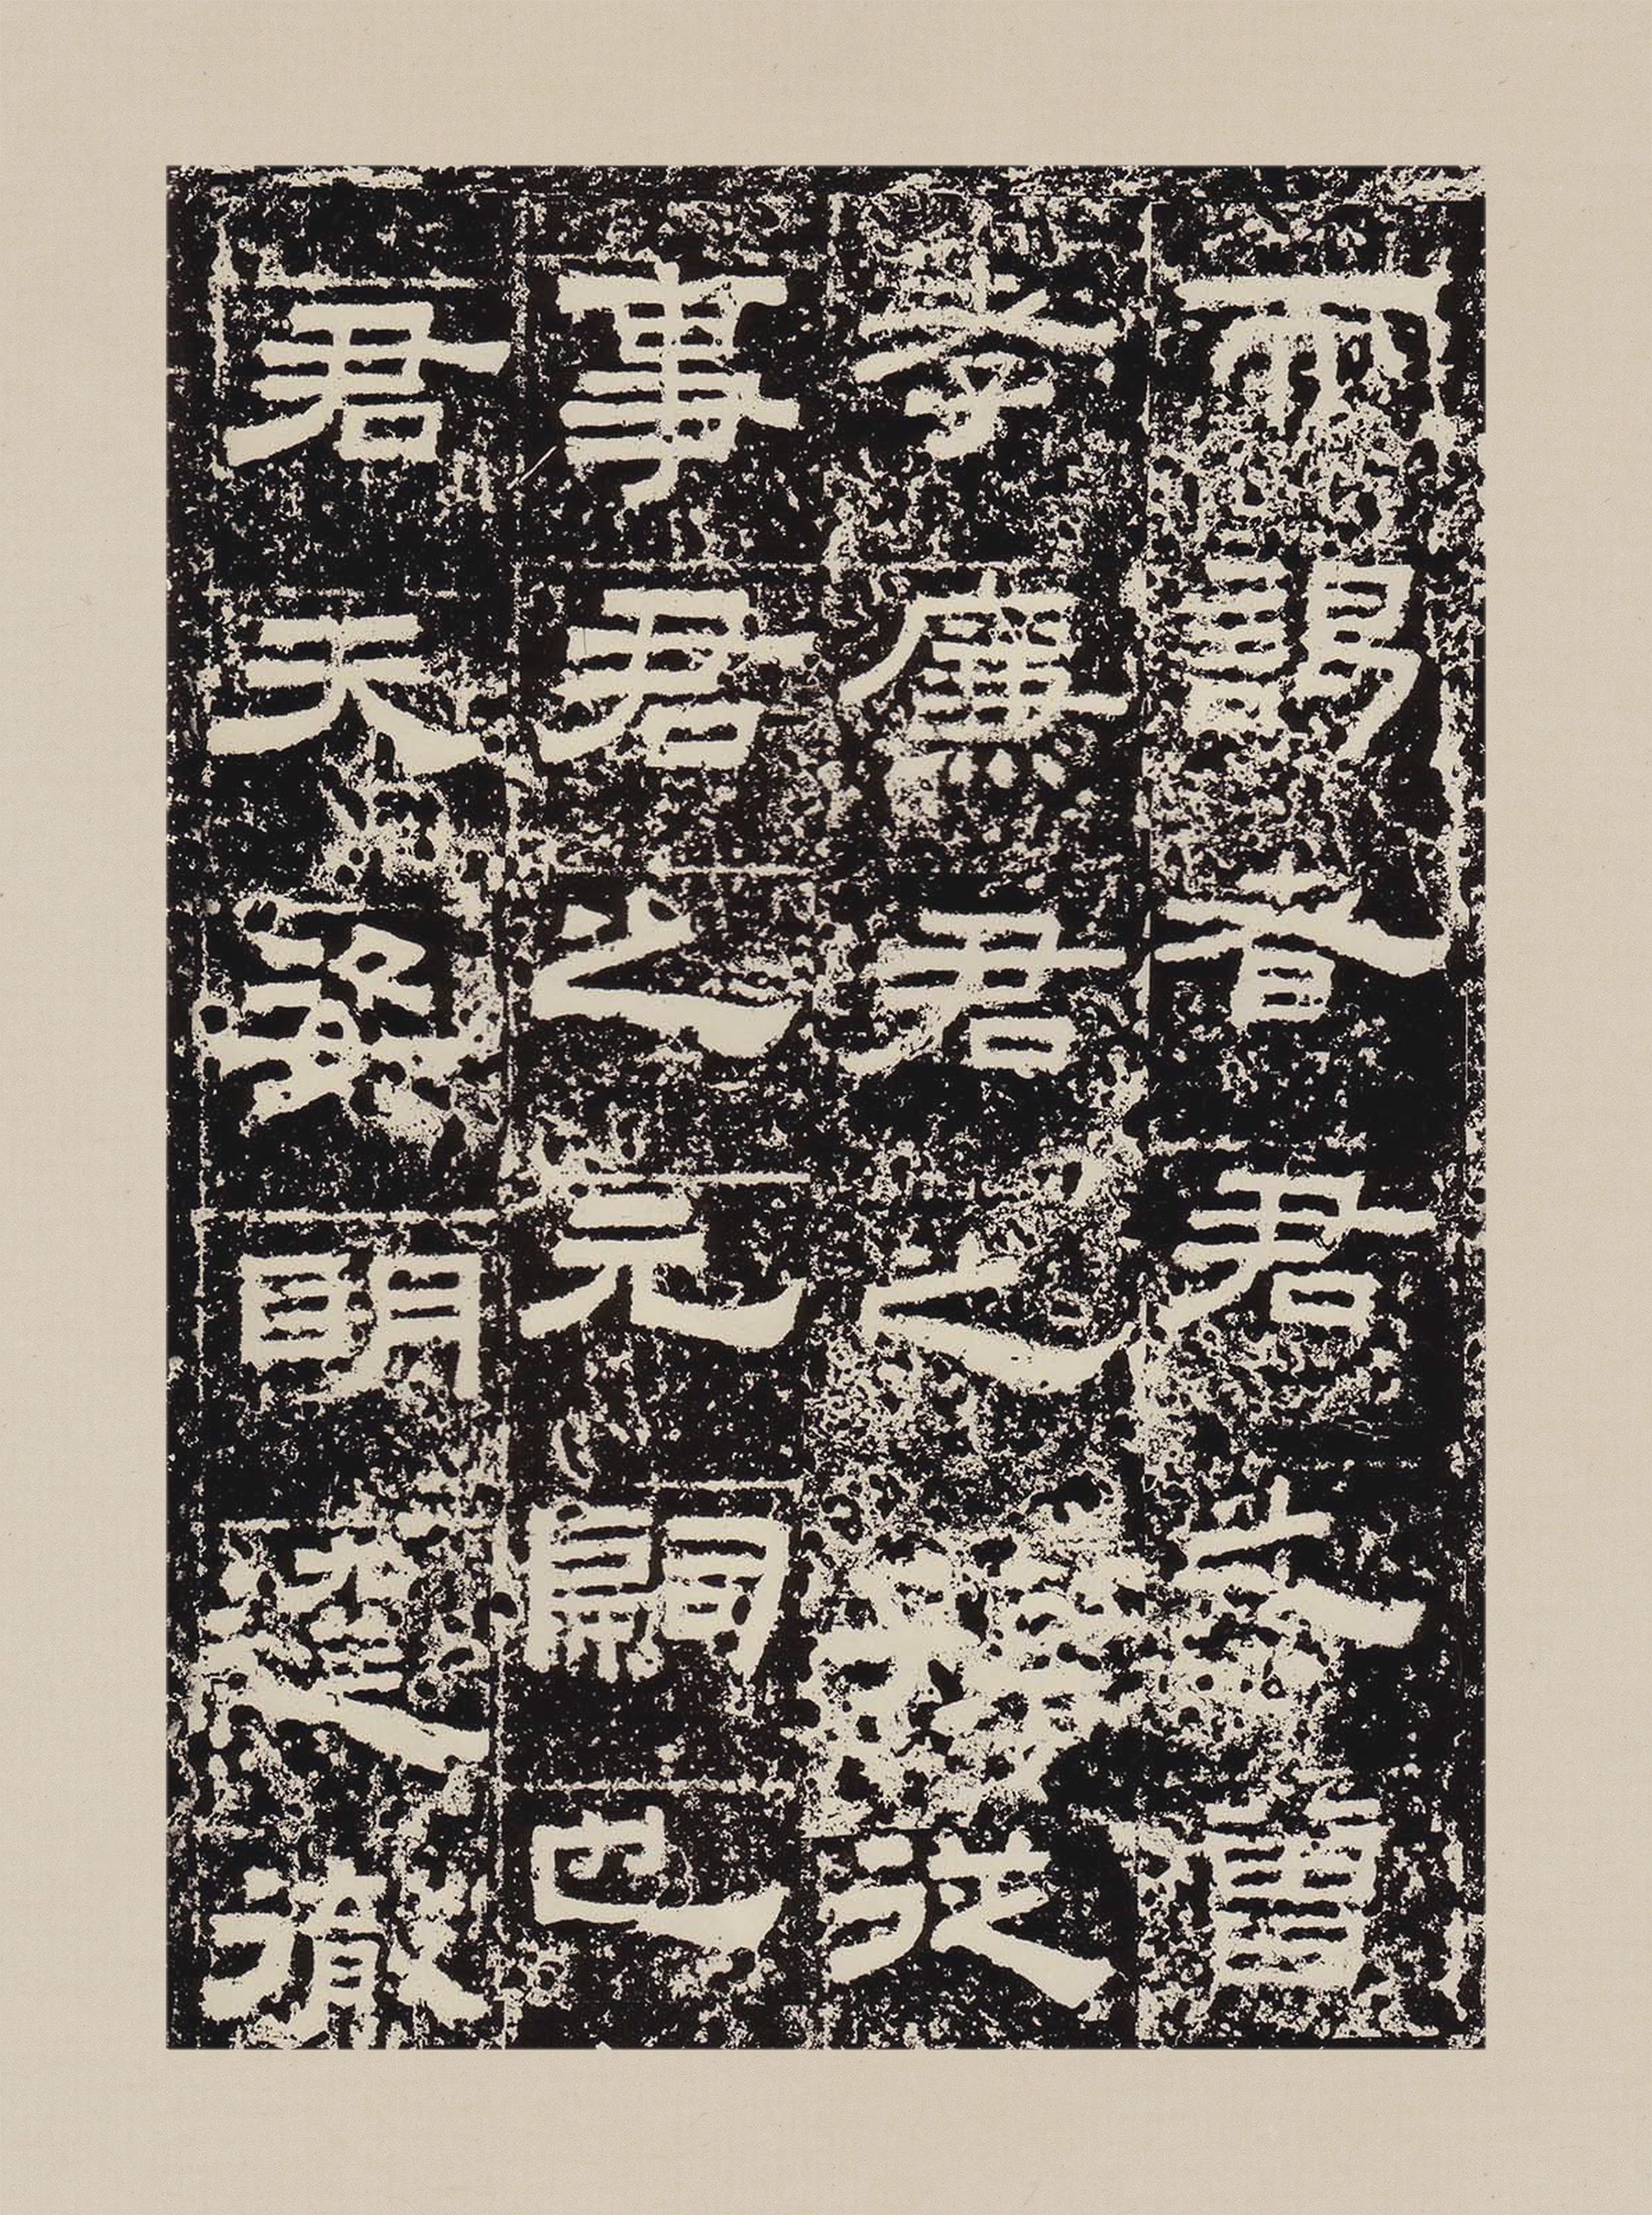 而謁者君之曾
孝廉君之孫從
事君之元嗣也
君天姿明達徹